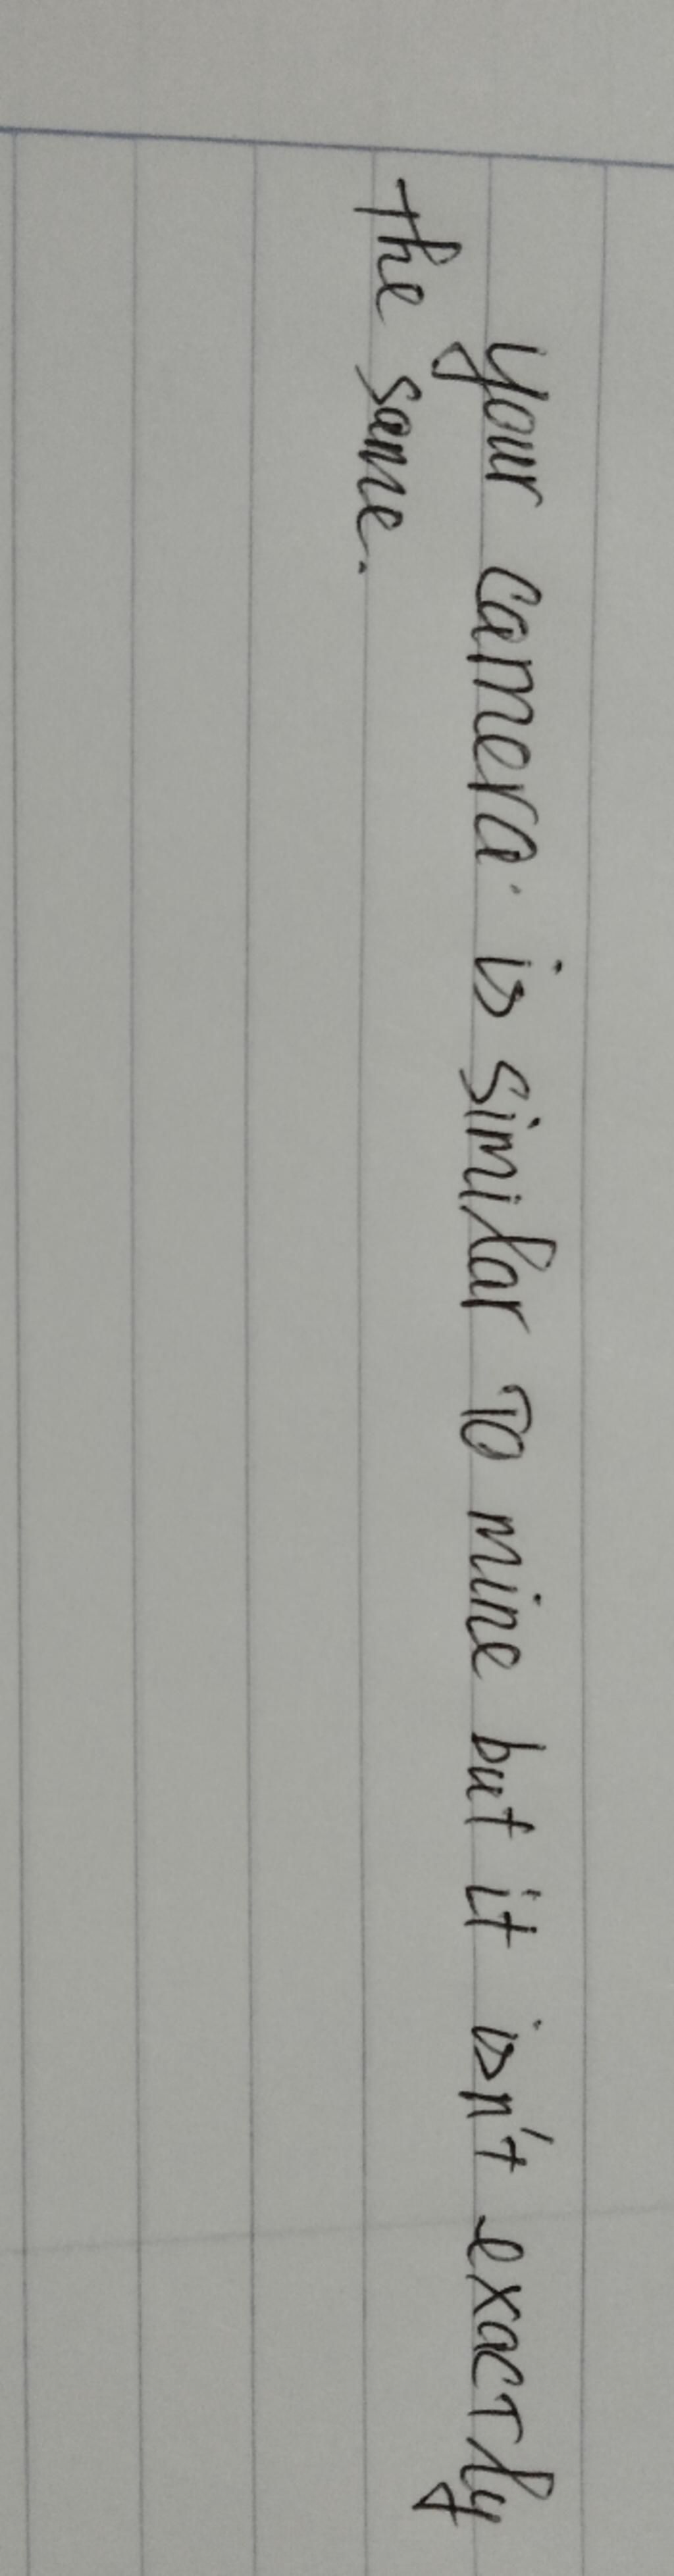 Your camera is similar to mine but it isn't exactly
the same.